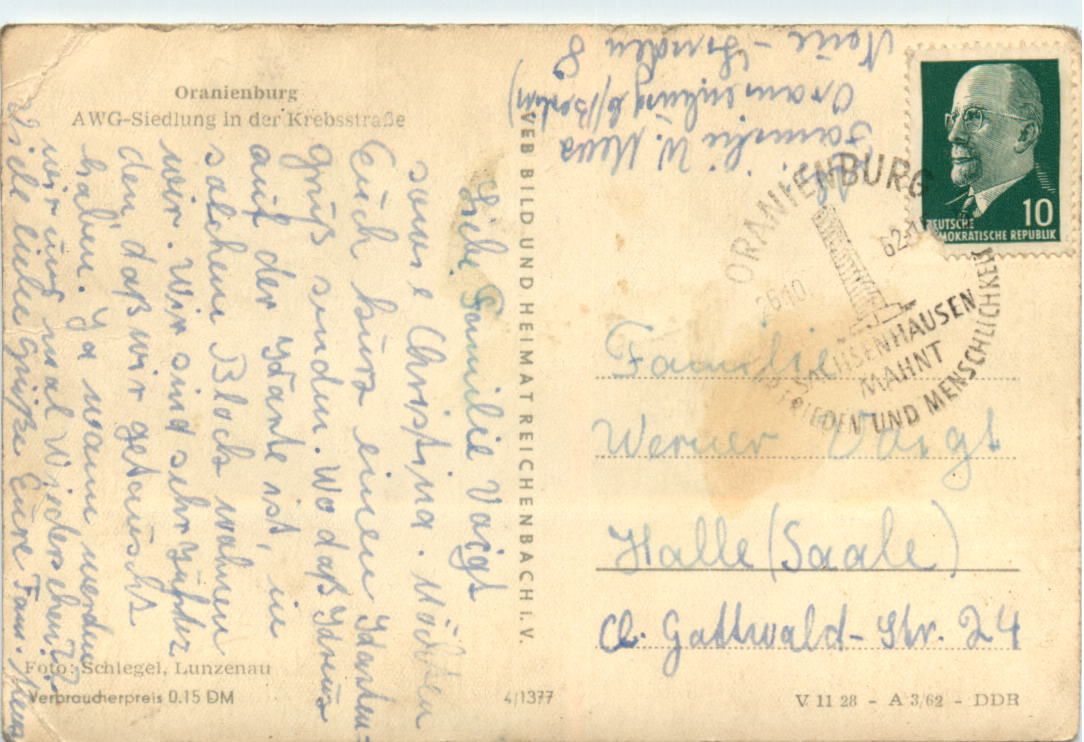 Oranienburg
AWG-Siedlung in der Krebsstraße
Liebe Familie Voigt
sowie Christina. Möchten
Euch kurz einen Karten=
gruß senden. Wo daß Kreuz
auf der Karte ist, in
solchen Block wohnen
wir. Wir sind sehr
den, daß wir getauscht
haben. Ja wann werden
wir uns mal wiedersehen??
Viele liebe Grüße Eure Fam.
Foto: Schlegel, Lunzenau
Verbraucherpreis 0.15 DM
VEB BILD UND HEIMAT REICHENBACH i. V.
4/1377
Familie W.
Oranienburg b/(Berlin)
8
ORANIENBURG
26.10
62
SACHSENHAUSEN
MAHNT
FRIEDEN UND MENSCHLICHKEIT
10
DEUTSCHE
DEMOKRATISCHE REPUBLIK
Familie
Werner Voigt
Halle (Saale)
Cl. Gottwald-Str. 24
V 11 28 - A 3/62 - DDR